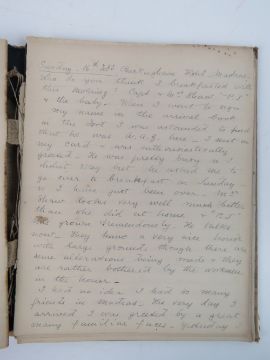 Sunday. 16th Feb. Buckingham Hotel, Madras.
Who do you think I breakfasted with
this morning? Capt & Mrs Shaw "P.J."
& the baby. When I went to sign
my name in the arrival book
in the I was astounded to find
that he was D.A.A.G. here I sent in
my card & was enthusiastically
greeted. He was pretty busy in a
way but he asked me to
go over to breakfast on Sunday
so I have just been over. Mrs
Shaw looks very well much better
than she did at home & "P.J."
grown tremendously. He talks
now. They have a very nice house
with large grounds though there are
some alterations being made & they
are rather bothered by the workmen
in the house.
I had no idea I had so many
friends in Madras. The very day I
arrived I was greeted by a great
many familiar faces. Yesterday